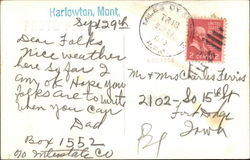 Harlowton, Mont.
Sept 29th
Dear Folks
Nice weather
here so far I
am ok Hope you
folks are to write
when you can
Dad
Box 1552
c/o Interstate Co
2 CENTS 2
Mr & Mrs Charles
2102 - So 15th St
Fort Dodge
Iowa